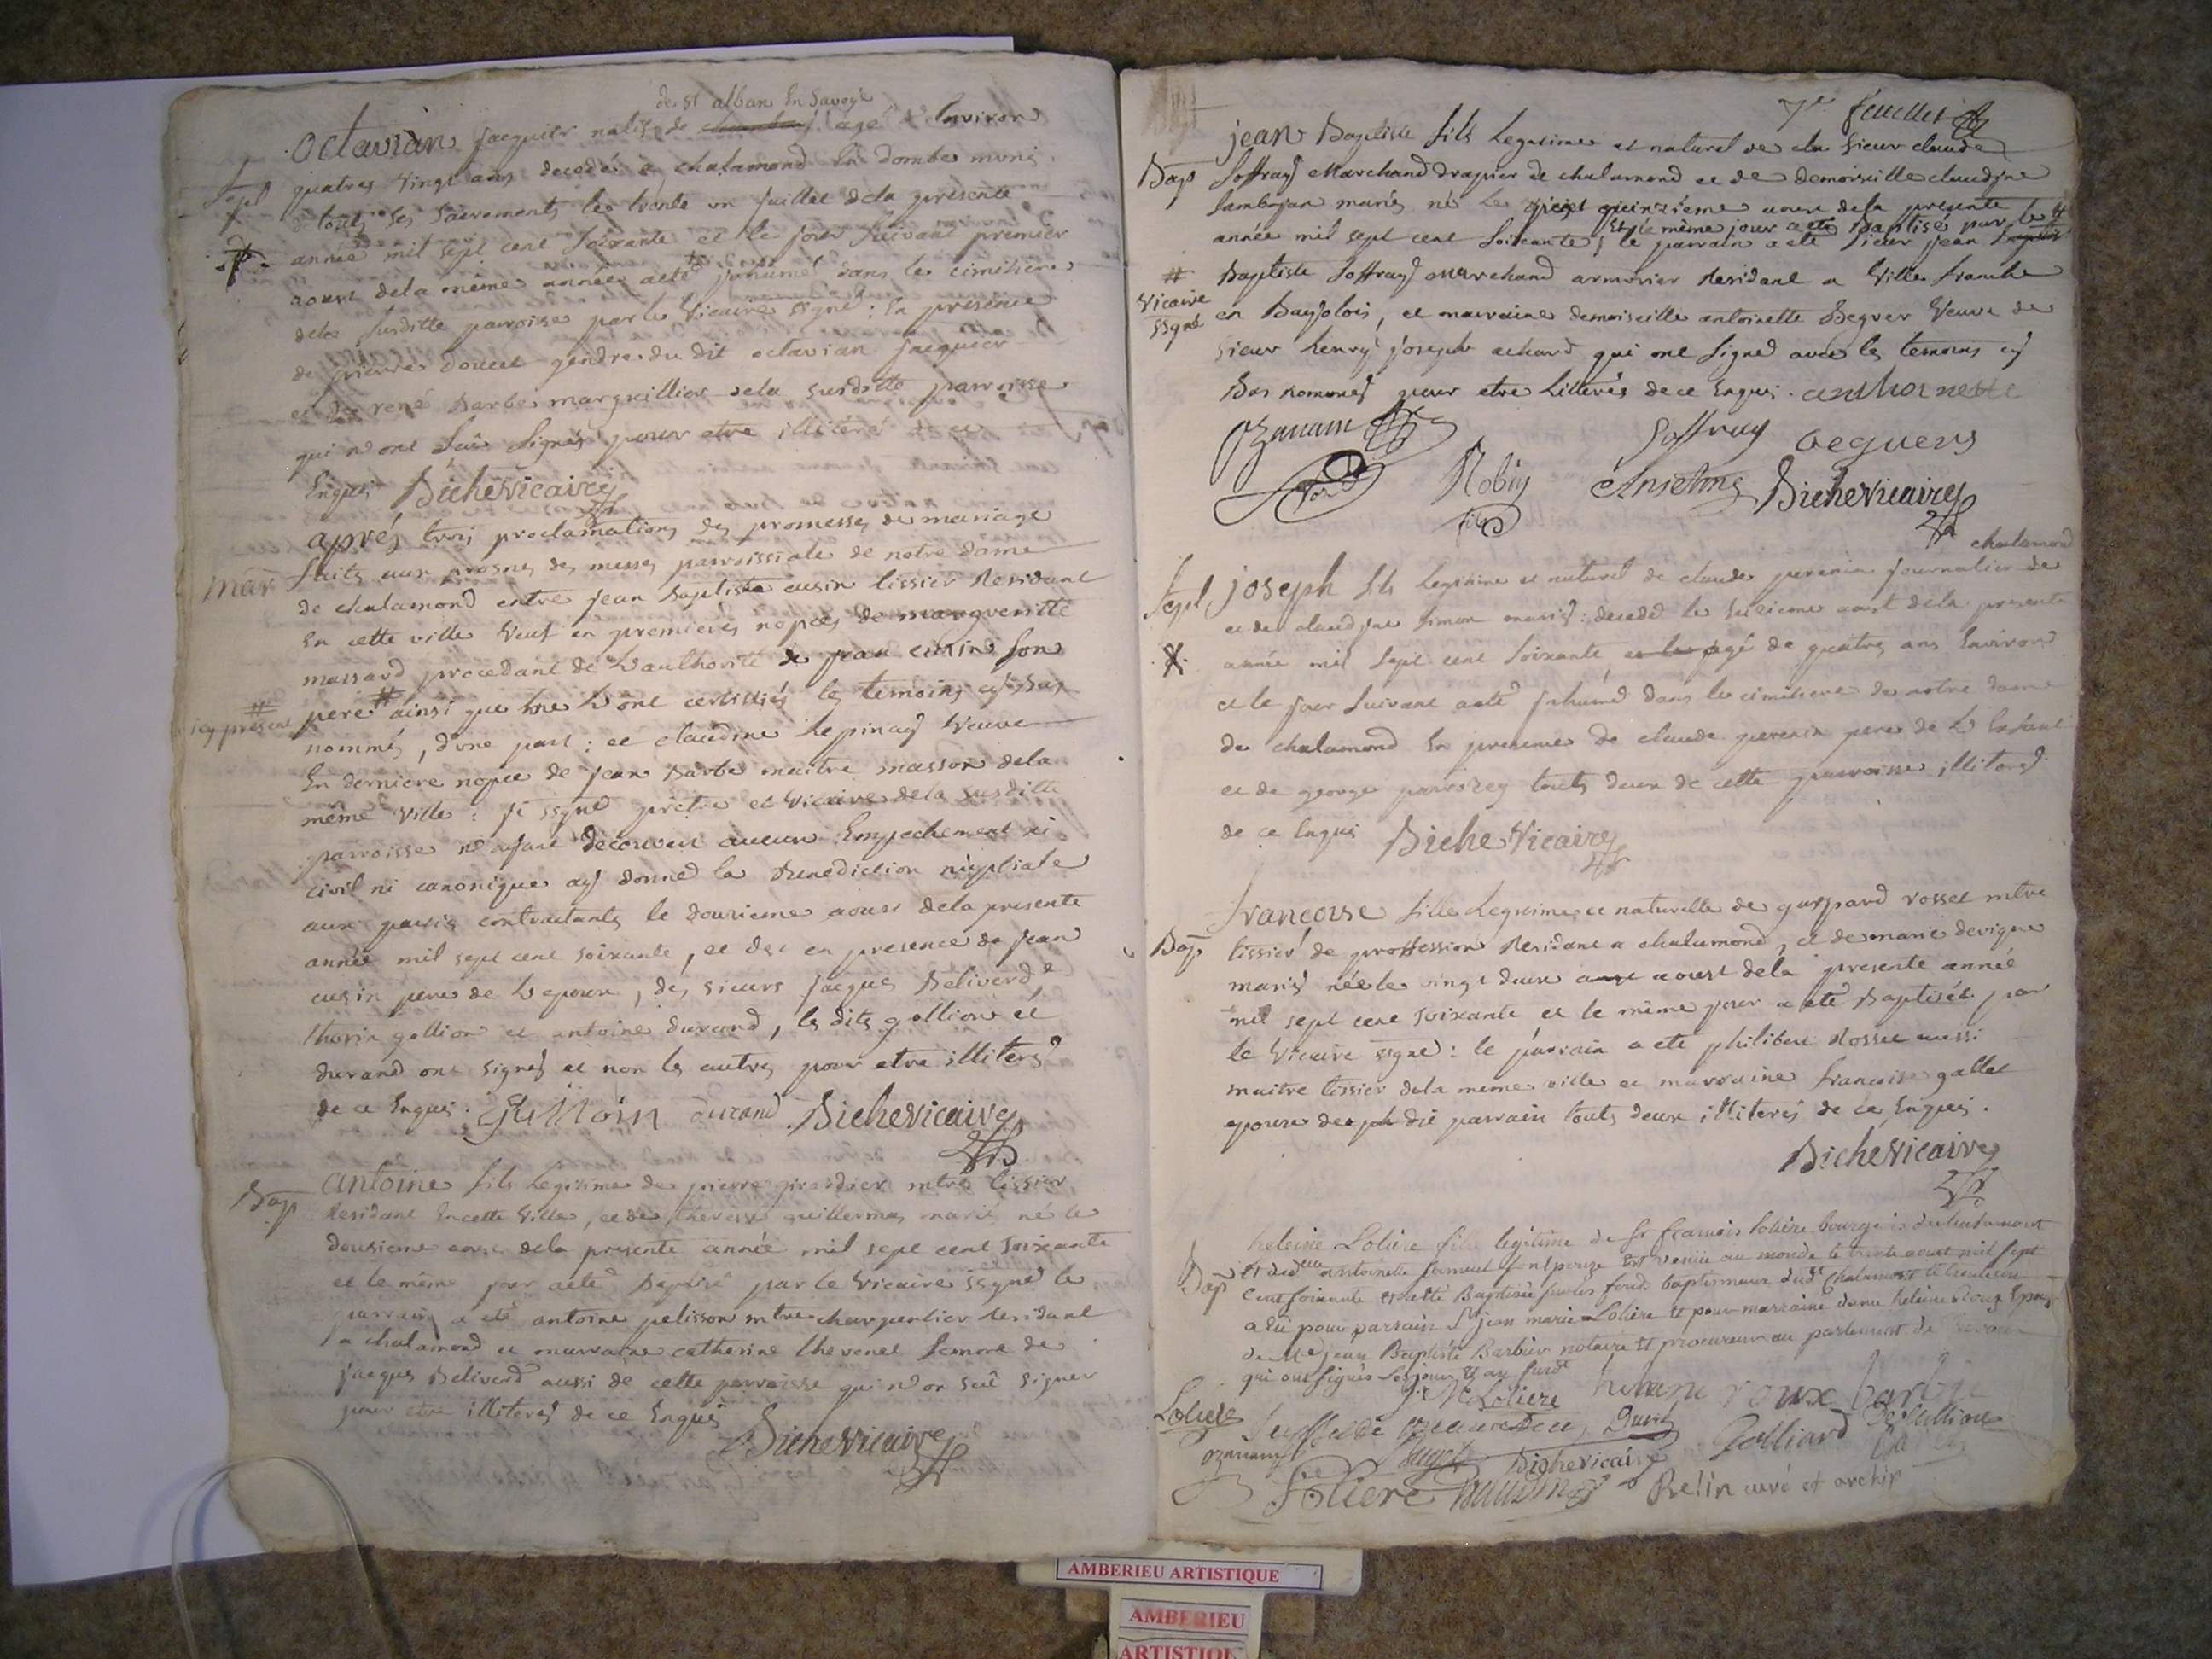 de st alban En Savoye
octavian jacquier natif de agé d Environ
Sept
quatres vingt ans decedé a chalamond En dombe muni
de touts ses Sacrements le trente un juillet dela presente
année mil sept cent soixante et le jour suivant premier
aoust dela même année aeté jnhumé dans le cimitiere
dela susditte parroisse par le vicaire ssigné : En presence
de pierre doucet gendre du dit octavian jacquier
et de rené barbe marguillier dela susditte parroisse
qui n'ont sçû signés pour etre illiterés de ce
Enquis Bichevicaire
aprés trois proclamations des promesses de mariage
Mar
faits aux prosnes des messes parroissiale de notre dame
de chalamond entre jean baptiste cusin tissier Residant
En cette ville veuf en premieres nopces de margueritte
massard procedant de L'authorité de jean cusin son
# icy present
pere # ainsi que me L'ont certifiés les temoins cy bas
nommés, d'une part ; et claudine Lepinay veuve
En derniere nopce de jean barbe maitre masson dela
même ville : je ssigné prêtre et vicaire dela susditte
parroisse n'ayant decouvert aucun Empechement ni
civil ni canonique ay donné la Benediction nuptiale
aux parties contractants le douzieme aoust dela presente
année mil sept cent soixante, et de en presence de jean
cusin pere de L'epoux, des sieurs jacques Beliverd,
thorin gallion et antoine durand, les dits gallion et
durand ont signés et non les autres pour etre illiterés
de ce Enquis. durand Bichevicaire
Bap
antoine fils Legitime de pierre girardier mtre tissier
Residant En cette ville, et de therese guillermas mariés né le
douzieme aoust dela presente année mil sept cent soixante
et le même jour aeté Baptisé par le vicaire ssigné le
parrain a eté antoine pelisson mtre charpentier Residant
a chalamond et marraine catherine thevenet femme de
jacques Beliverd aussi de cette parroisse qui n'on sçû signer
pour etre illiterés de ce Enquis
Bichevicaire
7e feuillet
jean Baptiste fils Legitime et naturel de sieur claude
Bap
Soffray Marchand drapier de chalamond et de demoiselle claudine
Lambojan mariés né le quinzieme aoust dela presente
Et le même jour a eté Baptisé par le #
année mil sept cent soixante ; le parrain a eté sieur jean
# vicaire ssigné
Baptiste Soffray Marchand armorier Residant a Ville franche
en Baujolois, et marraine demoiselle antoinette Begver veuve de
sieur henry joseph achard qui ont signé avec les temoins cy
Bas nommés pour etre Litterés de ce Enquis. anthoinette
Ozanam Soffray beguers
Robin fils Anselme Bichevicaire
chalamond
Sept
joseph fils Legitime et naturel de claude perenin journalier de
et de claudine simon mariés : decedé le seizieme aoust dela presente
année mil sept cent soixante agé de quatres ans Environ
et le jour suivant aeté jnhumé dans le cimitiere de notre dame
de chalamond En presence de claude perenin pere de L'Enfant
et de george touts deux de cette parroisse illiterés
de ce Enquis Biche Vicaire
francoise fille Legitime et naturelle de gaspard rosset mtre
Bap
tissier de proffession Residant a chalamond, et de marie devigne
mariés née le vingt deux aoust dela presente année
mil sept cent soixante et le même jour a eté Baptisée par
le vicaire ssigné : le parrain a eté philibert Rosset aussi
maitre tissier dela meme ville et marraine francoise gallet
epouse de dit parrain touts deux illiterés de ce Enquis.
Bichevicaire
heleine Loliere fille legitime de Sr francois loliere bourgeois de chalamont
Bap
et de dlle antoinette son epouse Est venüe au monde le trente aoust mil sept
cent soixante et a eté Baptisée sur les fonds baptismaux dudt Chalamont
a eü pour parrain Sr jean marie Loliere et pour marraine dame heleine Roux Epouse
de Me jean Baptiste Barbier notaire et procureur au parlement de
qui ont signés les jour et an susdt
Loliere helaine roux barbie
Loliere
ozanam Bichevicaire Galliard
Loliere Relin curé et archip
AMBERIEU ARTISTIQUE
AMBERIEU
ARTISTIQU